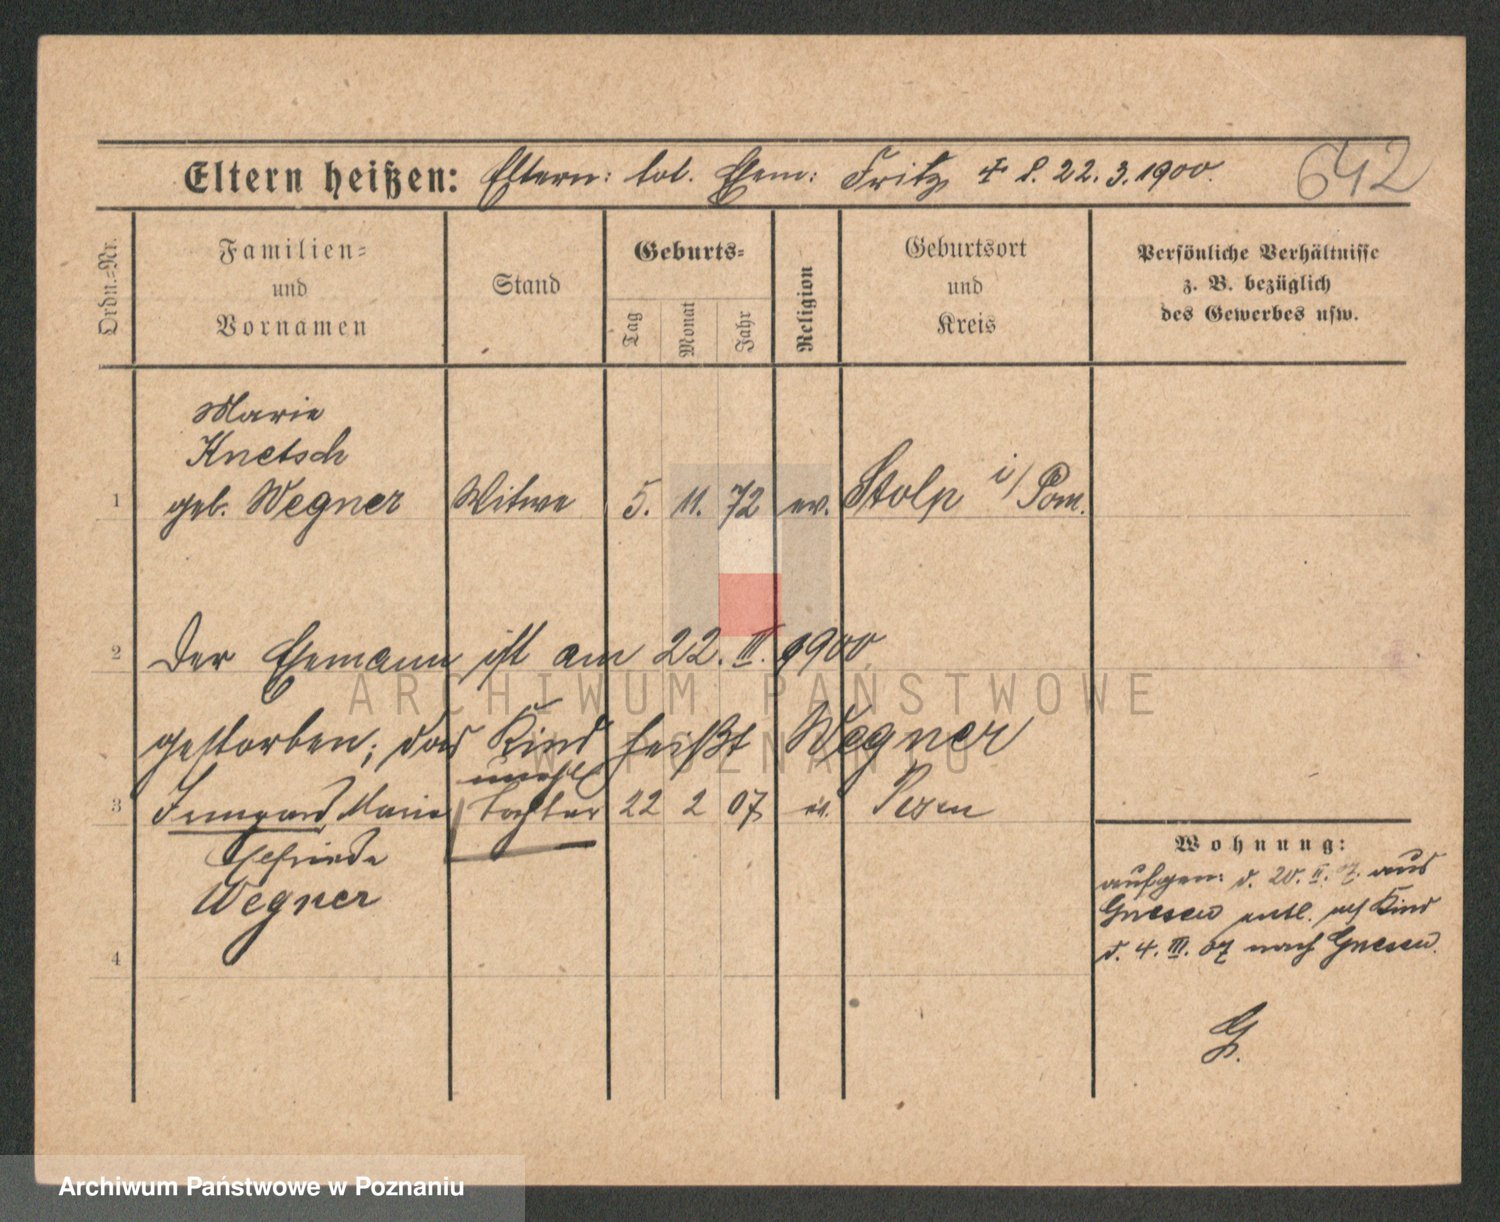 Eltern heißen: Eltern: tot. Ehem: Fritz † d. 22.3.1900.
642
Ordn.-Nr.
Familien-
und
Vornamen
Stand
Geburts-
Tag
Monat
Jahr
Religion
Geburtsort
und
Kreis
Persönliche Verhältnisse
z. B. bezüglich
des Gewerbes usw.
Marie
Knetsch
1 geb. Wegner Witwe 5. 11. 72 ev. Stolp i/Pom.
2 Der Ehemann ist am 22. III. 1900
gestorben; das Kind heißt Wegner
unehl.
3 Irmgard Marie Tochter 22 2 07 ev. Posen
Elfriede
Wegner
4
Wohnung:
aufgen: d. 20. II. 07 aus
Gnesen entl. mit Kind
d. 4. III. 07 nach Gnesen.
G.
ARCHIWUM PAŃSTWOWE
W POZNANIU
Archiwum Państwowe w Poznaniu